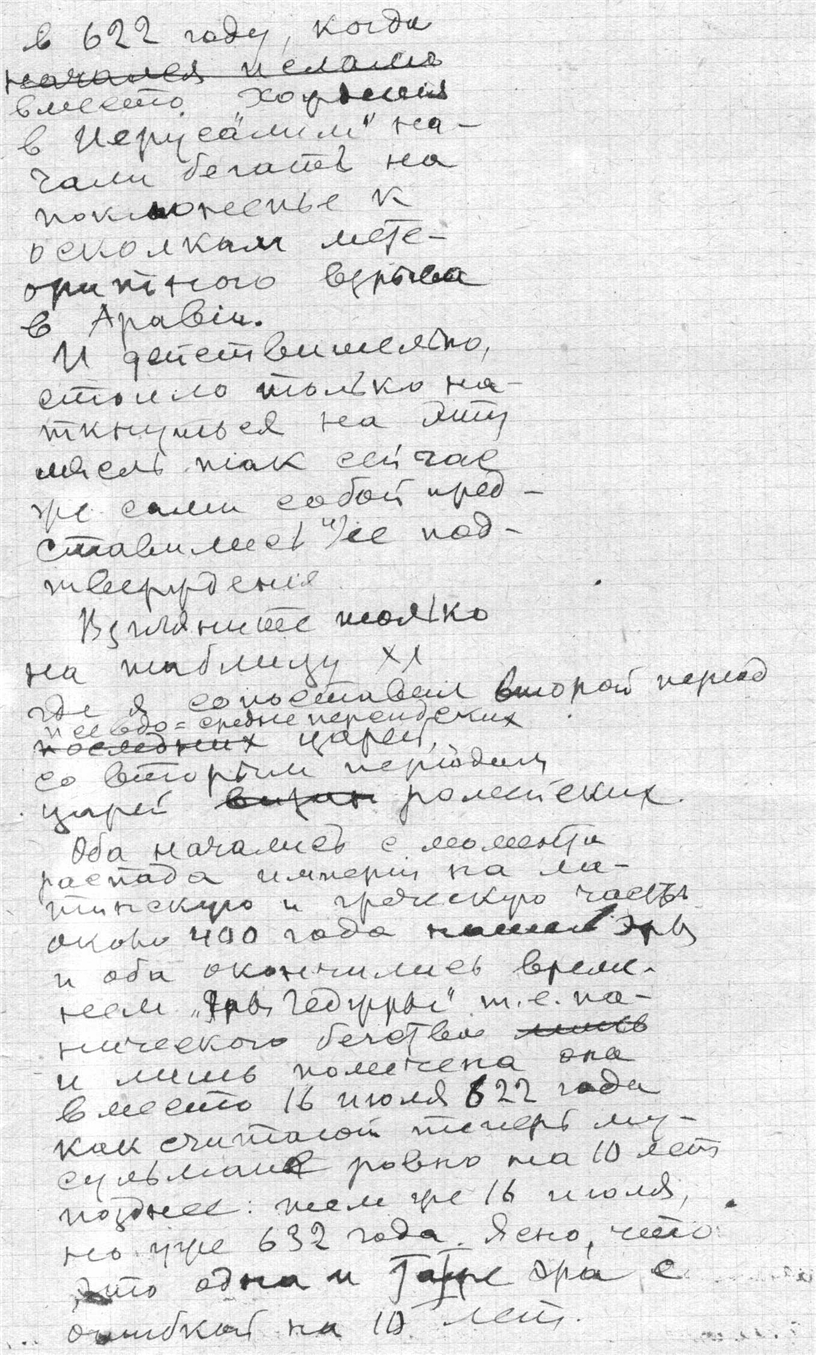 в 622 году, когда
начался ислам
вместо хождения
в "Иерусалим" на-
чали бегать на
поклоненье к
осколкам мете-
оритного взрыва
в Аравiи.
И действительно,
стоило только на-
ткнуться на эту
мысль так сейчас
же сами собой пред-
ставились и ее под-
тверждения
Взгляните только
на таблицу XI
где я сопоставил второй период
псевдо=средне персидских
последних царей,
со вторым перiодом
царей визан ромейских.
Оба начались с момента
распада имперiи на ла-
тинскую и греческую часть
около 400 года нашей эры
и оба окончились време-
нем „Эры Гедцры" т.е. па-
нического бегства лишь
и лишь помечена она
вместо 16 июля 622 года
как считают теперь му-
сульмане ровно на 10 лет
позднее: тем же 16 июля,
но уже 632 года. Ясно, что
это одна и та же эра с
ошибкой на 10 лет.